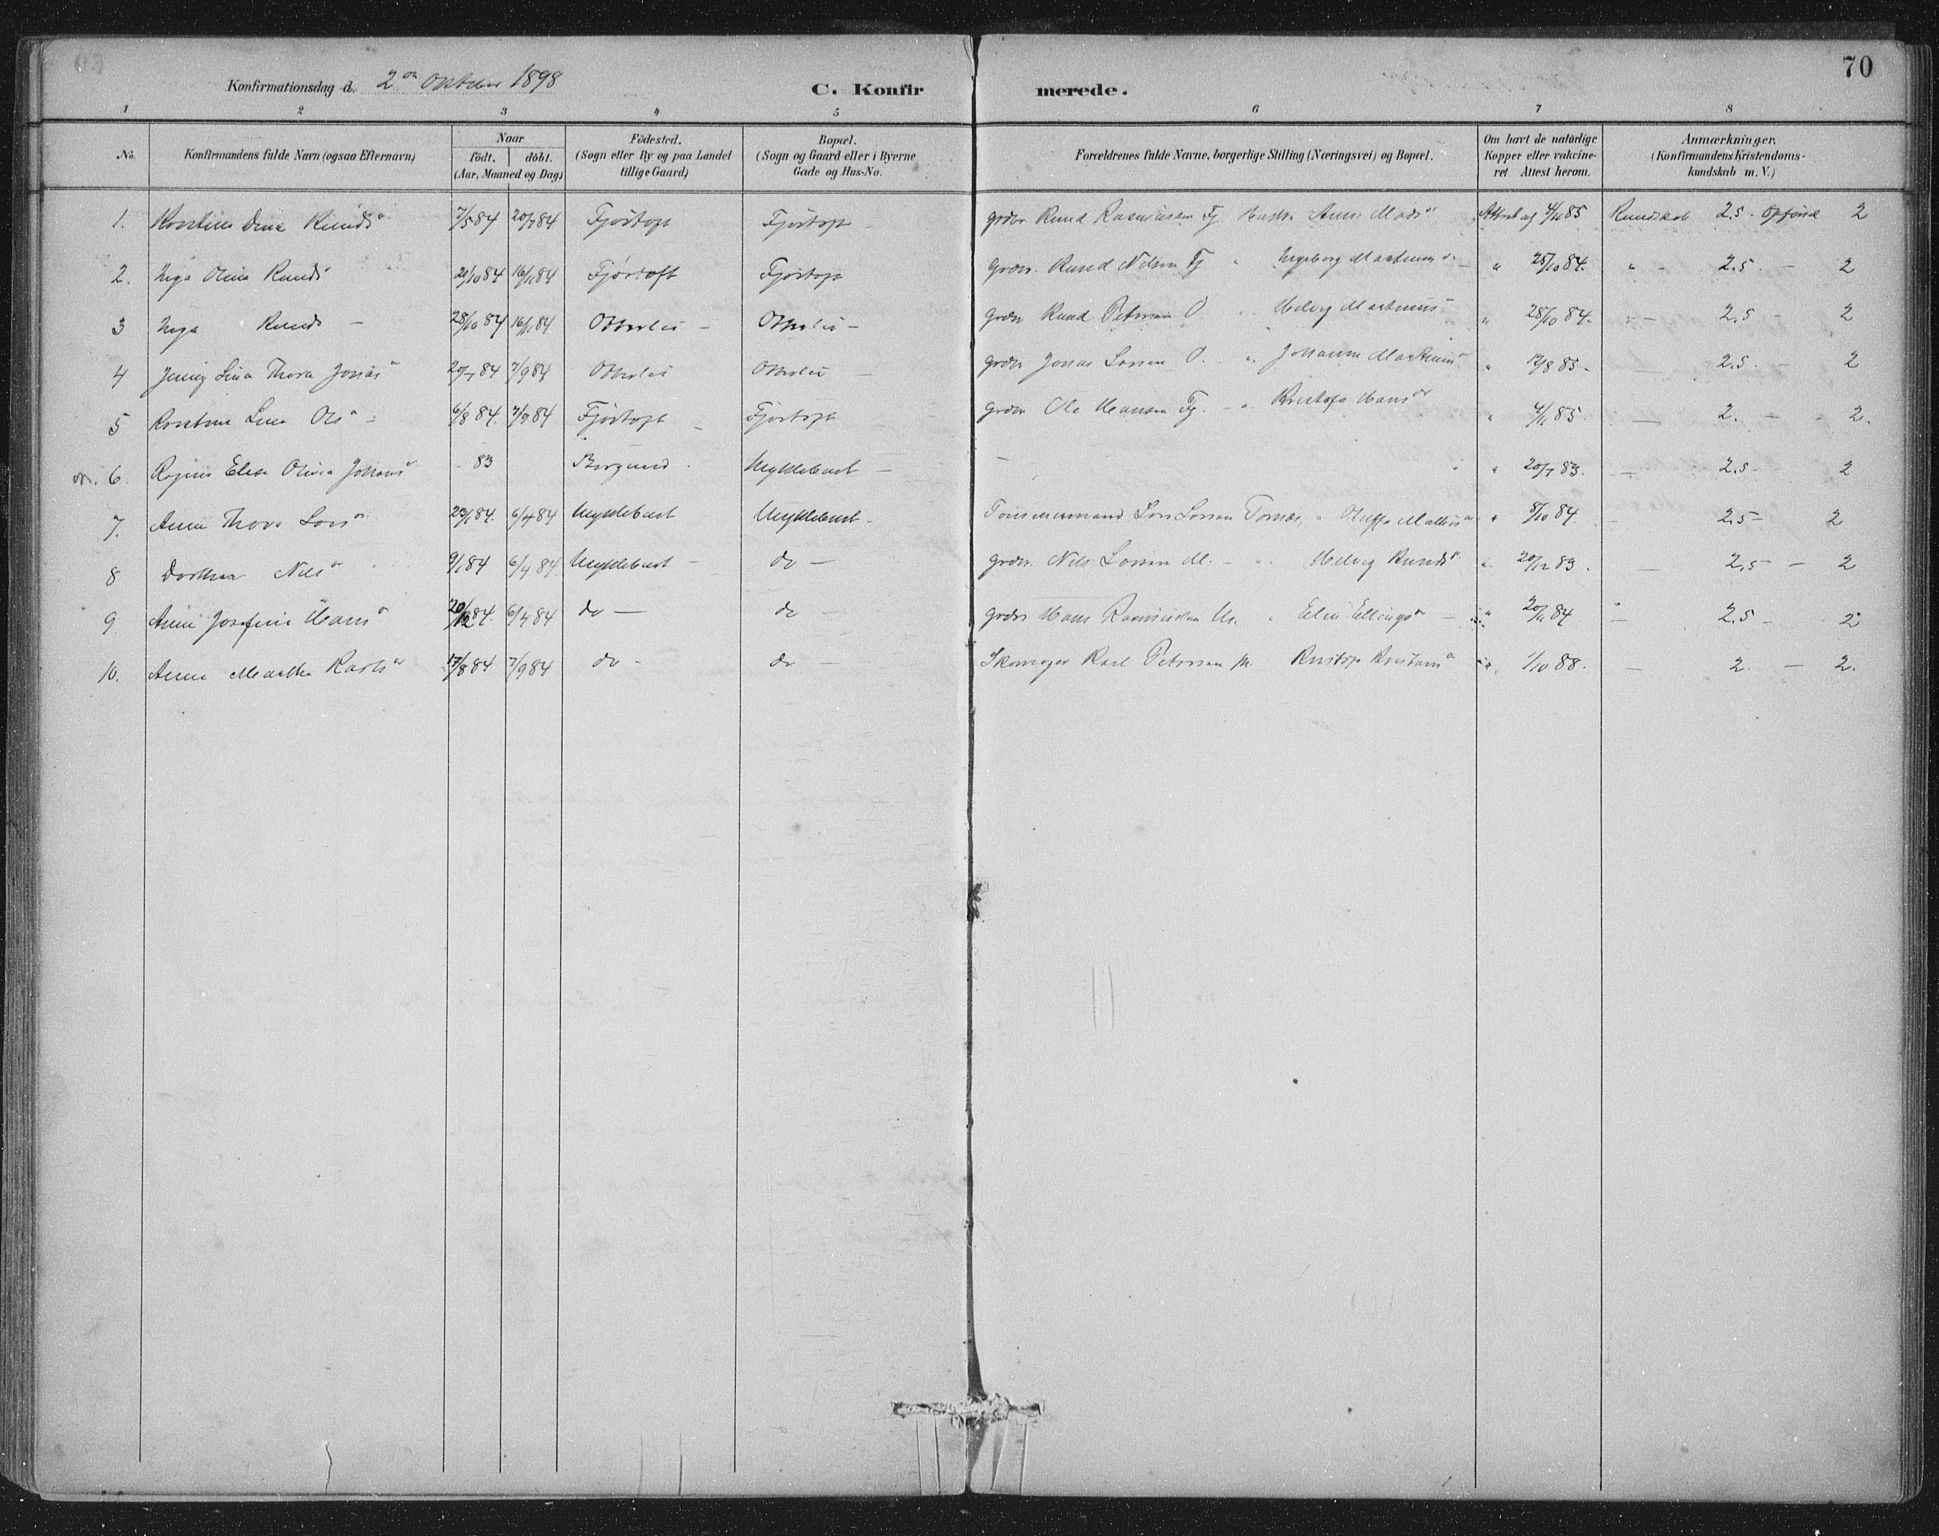 70
Konfirmationsdag d. 2 Oktober 1898 C. Konfirmerede.
1 2 3 4 5 6 7 8
No. Konfirmandens fulde Navn (ogsaa Efternavn) Naar født. døbt. (Aar, Maaned og Dag) Fødested. (Sogn eller By og paa Landet tillige Gaard) Bopæl. (Sogn og Gaard eller i Byerne Gade og Hus-No. Forældrenes fulde Navne, borgerlige Stilling (Næringsvei) og Bopæl. Om havt de naturlige Kopper eller vakcineret Attest herom. Anmærkninger. (Konfirmandens Kristendomskundskab m. V.)
1. Dina Knudsd 7/5 84 20/7 84 Fjørtoft Fjørtoft grdbr Knud Rasmussen Fj Anne Madsd Attest af 4/11 85 Kundskab 2.5 Opførsel 2
2. Inga Olina Knudsd 20/10 84 16/11 84 Fjørtoft Fjørtoft grdbr. Knud Nilsen Fj. " Ingeborg Martinusd " 25/10 84. " - 2.5 - 2
3 Inga Knudsd 28/10 84 16/11 84 Otterlei Otterlei grdbr Knud Petersen O " " 28/10 84. 2.5 - 2
4 Jenny Lina Thora Jonasd 20/7 84 7/9 84 Otterlei Otterlei grdbr Jonas Larsen O. " Johanne Martinusd " 19/8 85. - 2.5. - 2
5 Lina Olsd 6/8 84. 7/9 84 Fjørtoft Fjørtoft grdbr Ole Hansen Fj. - " Hansd " 4/11 85. - 2. - 2.
6. Elise Olina - 83 Borgund. Myklebust - " 20/7 83. - 2.5 - 2
7. Anne Thora Larsd 23/1 84. 6/4 84 Myklebust Myklebust. Lars Larsen " " 8/10 84. - 2.5 - 2
8 Dorthea Nilsd 9/1 84 6/4 84 Myklebust do - grdbr. Nils Larsen M. - " Knudsd " 20/12 83. - 2,5 - 2
9. Anne Josefine Hansd 6/4 84 do - do - grdbr Hans Rasmussen M. " Elin Ellingsd " 20/11 84 - 2.5 - 2
10. Anne Martha Karlsd 17/8 84 7/9 84 do - do - Skomager Karl Petersen M. " 1/10 88. - 2. - 2.